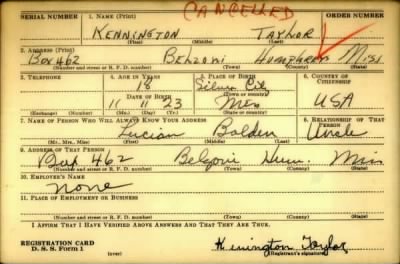 CANCELLED
SERIAL NUMBER 1. NAME (Print) ORDER NUMBER
KENNINGTON TAYLOR
(First) (Middle) (Last)
2. ADDRESS (Print)
Box 462 BELZONI HUMPHREYS Miss
(Number and street or R. F. D. number) (Town) (County) (State)
3. TELEPHONE 4. AGE IN YEARS 5. PLACE OF BIRTH 6. COUNTRY OF CITIZENSHIP
18 Silver City
(Town or county)
DATE OF BIRTH
11 11 23 Miss USA
(Exchange) (Number) (Mo.) (Day) (Yr.) (State or country)
7. NAME OF PERSON WHO WILL ALWAYS KNOW YOUR ADDRESS 8. RELATIONSHIP OF THAT PERSON
Lucian Bolden Uncle
(Mr., Mrs., Miss) (First) (Middle) (Last)
9. ADDRESS OF THAT PERSON
Box 462 Belzoni Hum. Miss
(Number and street or R. F. D. number) (Town) (County) (State)
10. EMPLOYER'S NAME
none
11. PLACE OF EMPLOYMENT OR BUSINESS
(Number and street or R. F. D. number) (Town) (County) (State)
I AFFIRM THAT I HAVE VERIFIED ABOVE ANSWERS AND THAT THEY ARE TRUE.
REGISTRATION CARD
D. S. S. Form 1 (over)
Kennington Taylor
Registrant's signature